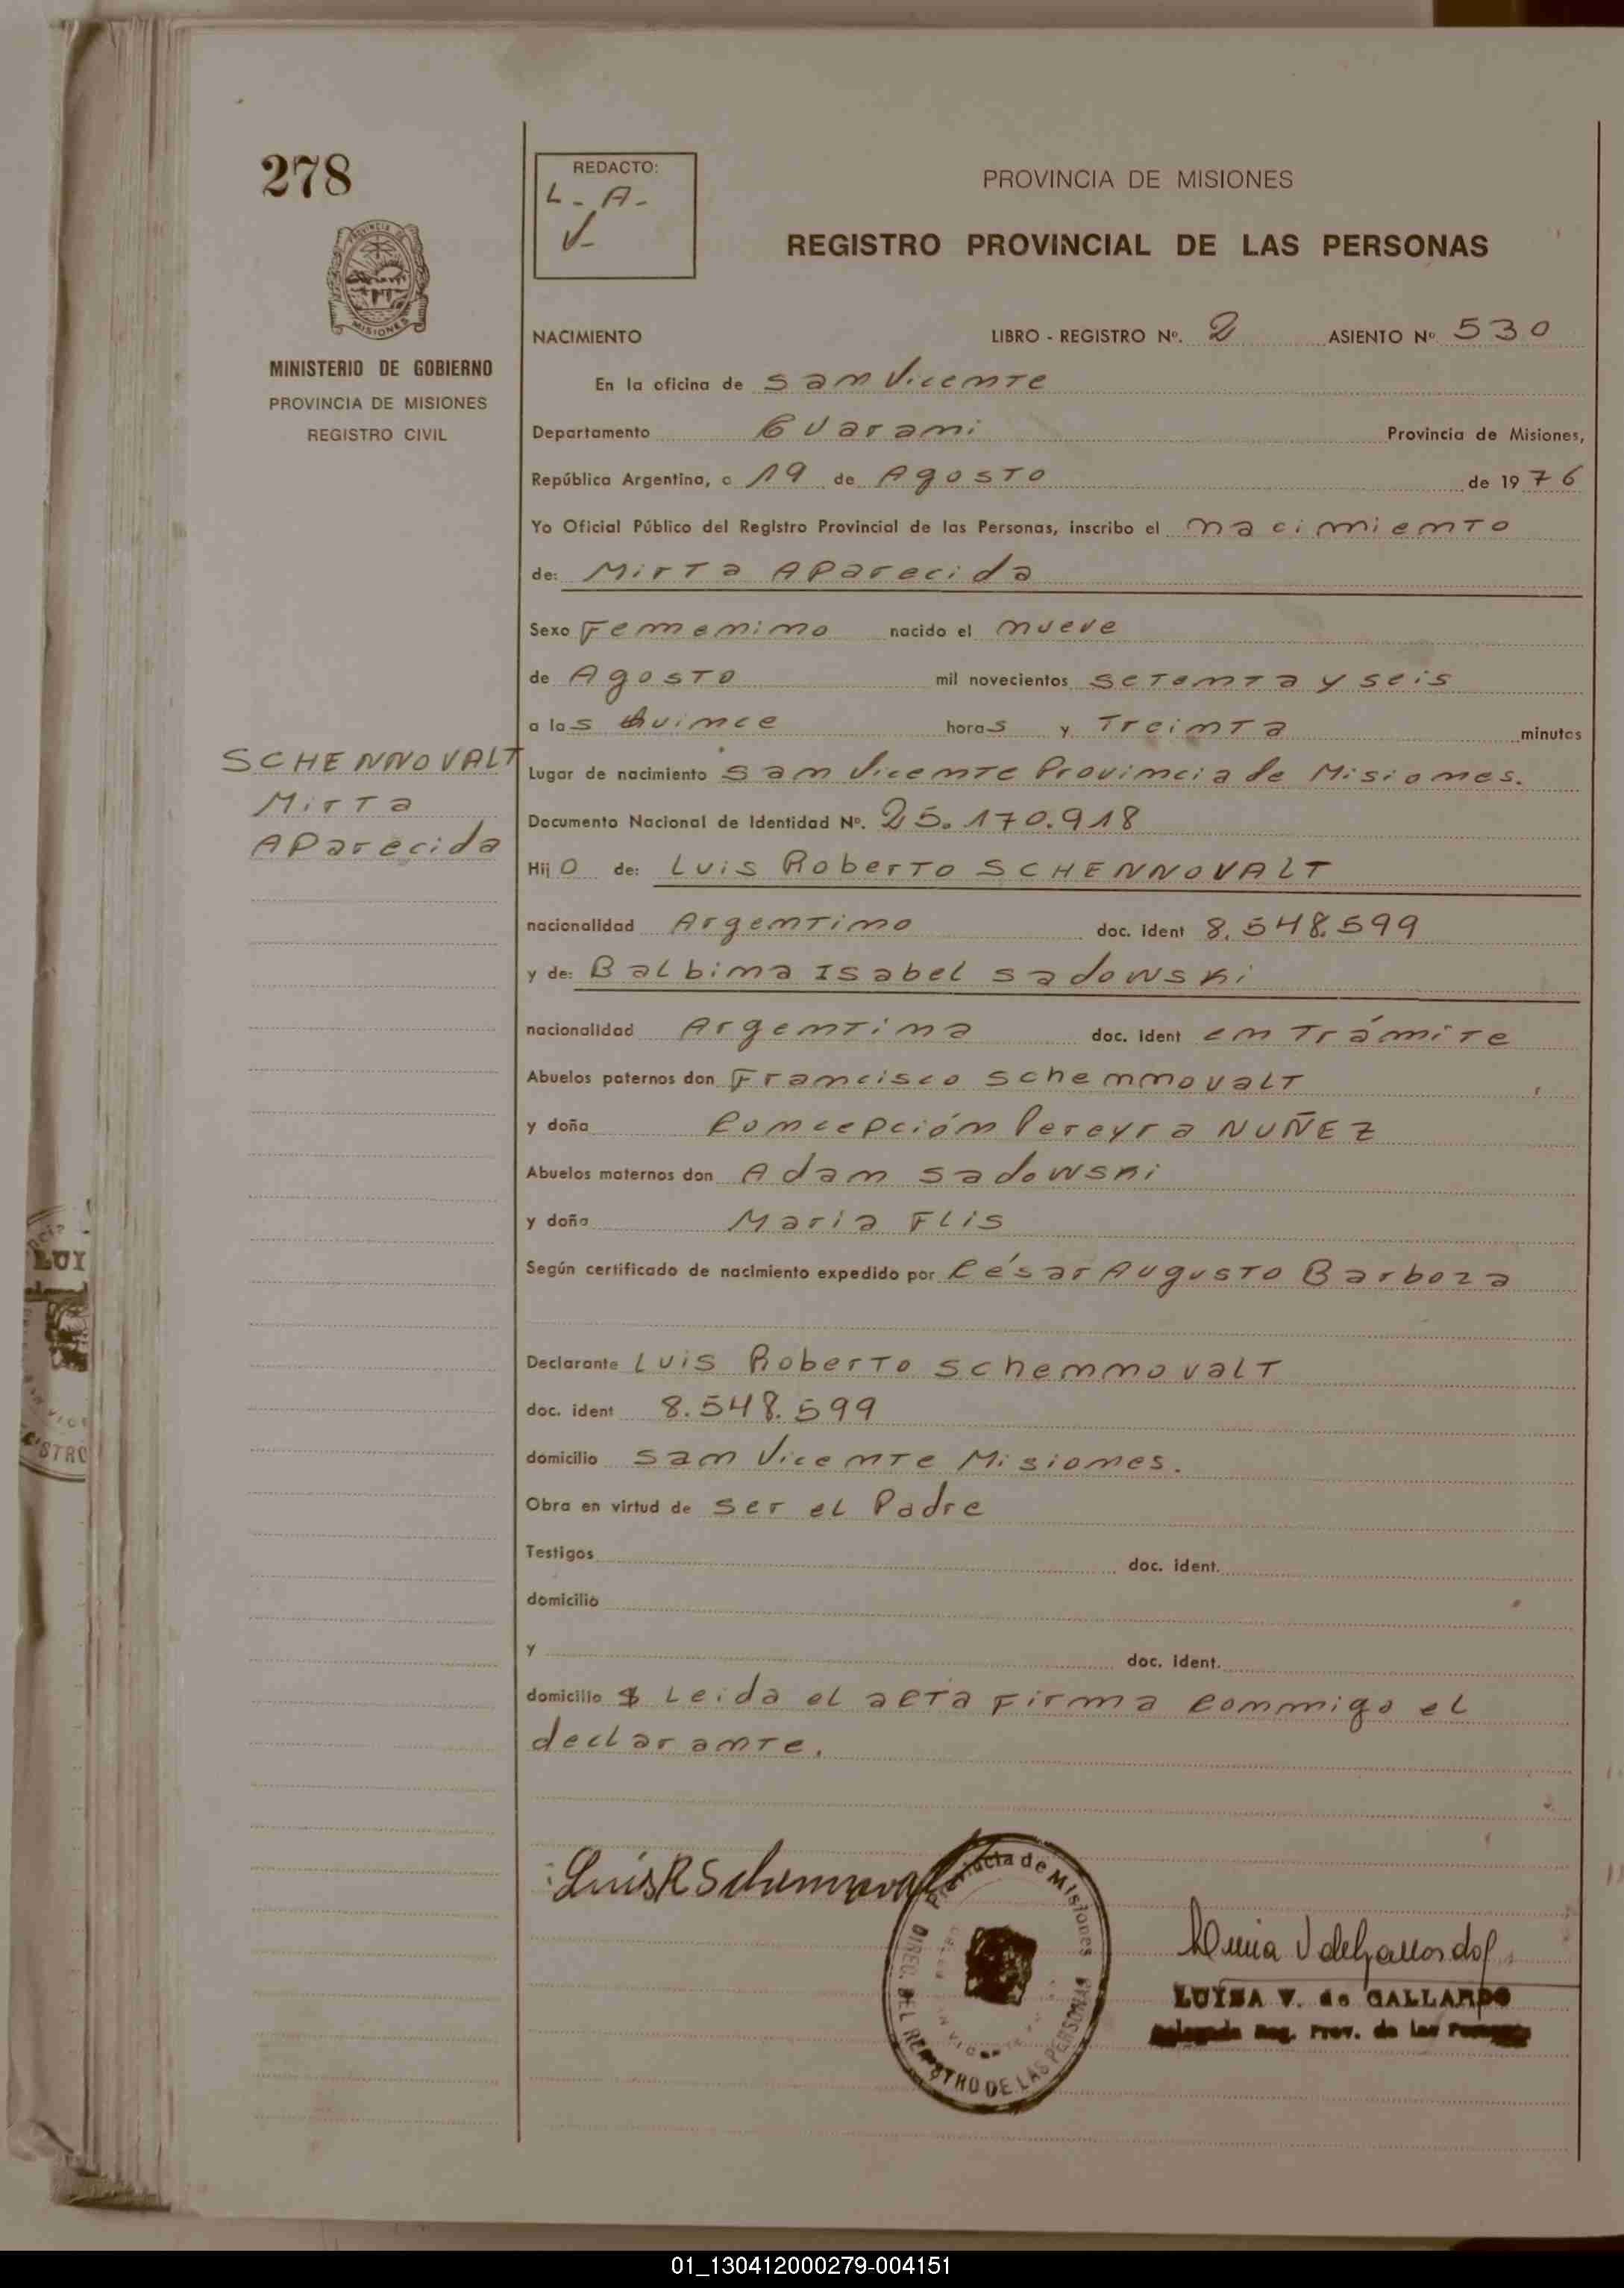 278
REDACTO:
L - A -
V-
PROVINCIA DE MISIONES
REGISTRO PROVINCIAL DE LAS PERSONAS
PROVINCIA DE
MISIONES
MINISTERIO DE GOBIERNO
PROVINCIA DE MISIONES
REGISTRO CIVIL
NACIMIENTO LIBRO - REGISTRO Nº. 2 ASIENTO Nº 530
En la oficina de San Vicente
Departamento Guarani Provincia de Misiones,
República Argentina, a 19 de Agosto de 1976
Yo Oficial Público del Registro Provincial de las Personas, inscribo el nacimiento
de: Mirta Aparecida
Sexo Femenino nacido el nueve
de Agosto mil novecientos setenta y seis
a las quince horas y Treinta minutos
SCHENNOVALT
Mirta
Aparecida
Lugar de nacimiento San Vicente Provincia de Misiones.
Documento Nacional de Identidad Nº. 25.170.918
Hijo de: Luis Roberto SCHENNOVALT
nacionalidad Argentino doc. ident 8.548.599
y de: Balbina Isabel Sadowski
nacionalidad Argentina doc. ident en Trámite
Abuelos paternos don Francisco Schennovalt
y doña Concepción Pereyra NUÑEZ
Abuelos maternos don Adam Sadowski
y doña Maria Flis
Según certificado de nacimiento expedido por César Augusto Barboza
Declarante Luis Roberto Schennovalt
doc. ident 8.548.599
domicilio San Vicente Misiones.
Obra en virtud de ser el Padre
Testigos doc. ident.
domicilio
y doc. ident.
domicilio Leida el acta firma conmigo el
declarante.
Luis R Schennovalt
Provincia de Misiones
DIREC. DEL REGISTRO DE LAS PERSONAS
LUISA V. de GALLARDO
Delegada Reg. Prov. de las Personas
LUI
ISTRO
01_130412000279-004151